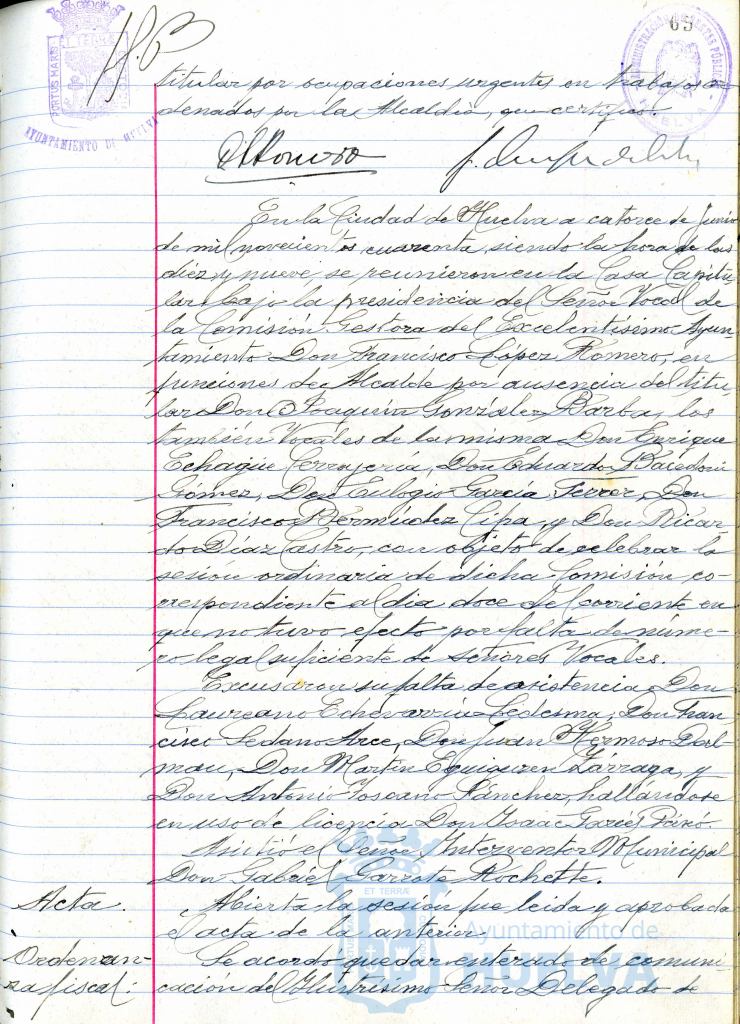 65
PORTUS MARIS
ET TERRÆ
AYUNTAMIENTO DE HUELVA
HUELVA
titular por ocupaciones urgentes en trabajos or-
denados por la Alcaldía, que certifico.
En la Ciudad de Huelva a catorce de Junio
de mil novecientos cuarenta, siendo la hora de las
diez y nueve, se reunieron en la Casa Capitu-
lar bajo la presidencia del Señor Vocal de
la Comisión Gestora del Excelentísimo Ayun-
tamiento Don Francisco López Romero, en
funciones de Alcalde por ausencia del titu-
lar Don Joaquín González Barba, los
también Vocales de la misma Don Enrique
Echagüe Don Eduardo
Gómez, Don Eulogio García Ferrer, Don
Francisco Bermúdez Cipa, y Don Ricar-
do Díaz Castro, con objeto de celebrar la
sesión ordinaria de dicha Comisión, co-
rrespondiente al día doce del corriente en
que no tuvo efecto por falta de núme-
ro legal suficiente de Señores Vocales.
Excusaron su falta de asistencia Don
Laureano Echevarría Ledesma, Don Fran-
cisco Sedano Arce, Don Juan Hermoso Dal-
mau, Don Martín Eguiguren Lárraga, y
Don Antonio Toscano Sánchez, hallándose
en uso de licencia Don Isaac
Asistió el Señor Interventor Municipal
Don Gabriel Garrate Rochette.
Acta. Abierta la sesión fue leida y aprobada
el acta de la anterior.
Ordenan-
za fiscal: Se acordó quedar enterado de comuni-
cación del Ilustrísimo Señor Delegado de
ET TERRÆ
Ayuntamiento de
HUELVA